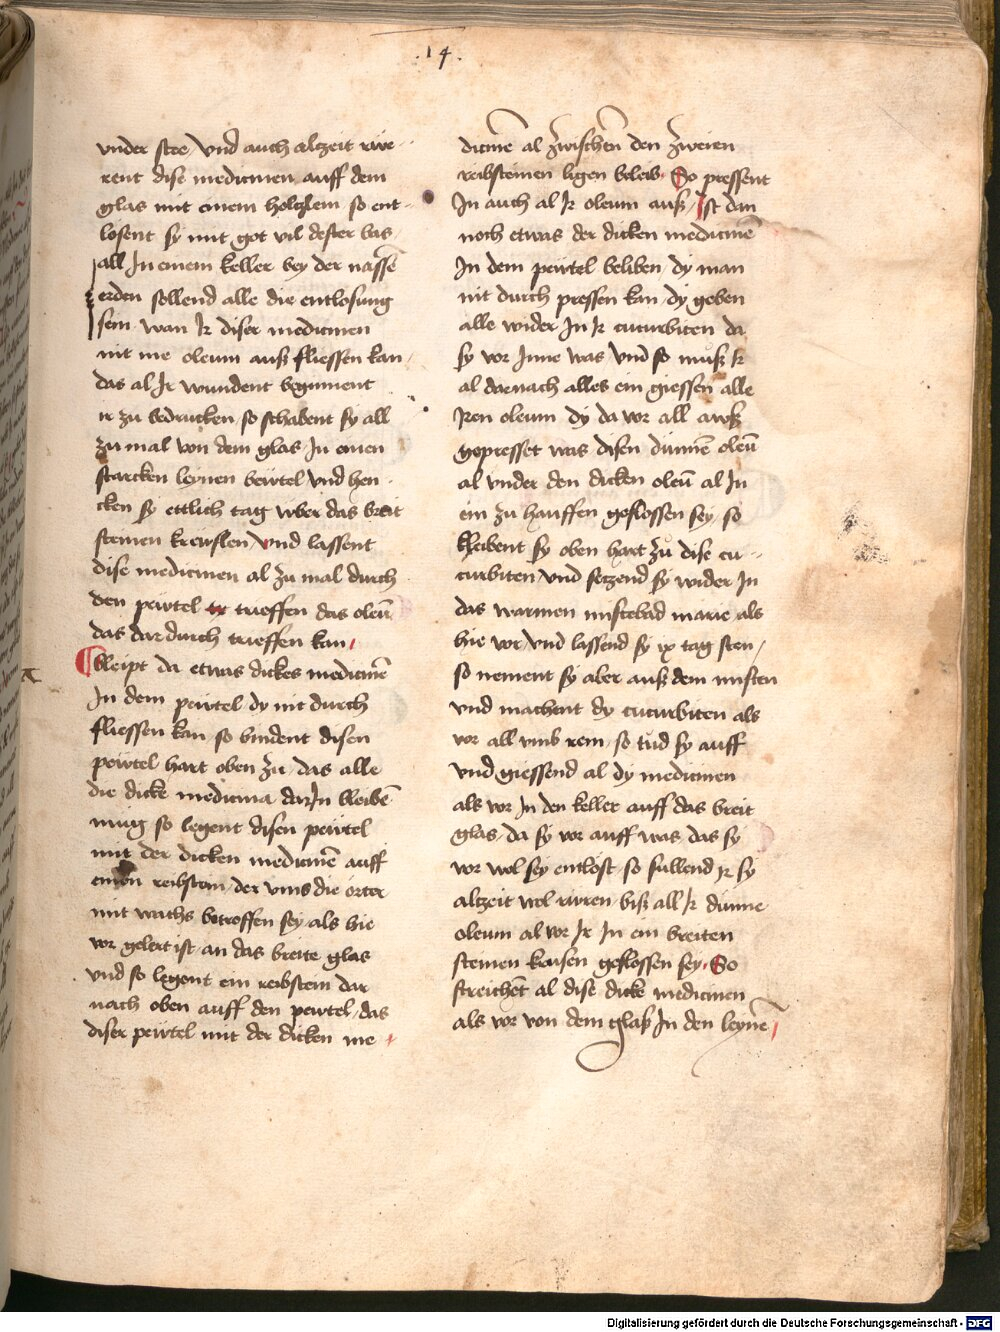 .14.
vnder stee / vnd auch alczeit rüe-
rent dise medicinen auff dem
glas mit einem holczlein so ent-
losent sy mit got vil dester bas /
all In einem keller bey der nassē
erden sollend alle die entlosung
sein wan Ir diser medicinen
nit me oleum auß fliessen kan /
das al Ir wundent begynnent
ir zu bedrucken / so schabent sy all
zu mal von dem glas In einen
starcken leynen beẅtel vnd hen-
cken sy ettlich tag vber das breit
steinen kreuslen / vnd lassent
dise medicinen al zu mal durch
den peẅtel trieffen das oleū
das dar durch trieffen kan /
bleipt da etwas dickes medicinē
In dem peẅtel dy nit durch
fliessen kan so bindent disen
peẅtel hart oben zu / das alle
die dicke medicina dar In bleibē
müg so legent disen peẅtel
mit der dicken medicinē auff
einen reibstein / der vmb die örter
mit wachs betroffen sey / als hie
vor gelert ist / an das breite glas
vnd so legent ein reibstein dar
nach oben auff den peẅtel / das
diser peẅtel mit der dicken me /
dicinē al zwischen den zweien
reibsteinen ligen bleib · So pressent
In auch al Ir oleum auß / Ist dan
noch etwas der dicken medicinē
In dem peẅtel beliben / dy man
nit durch pressen kan / dy geben
alle wider In Ir cucurbiten da
sy vor Inne was vnd so muß Ir
al darnach alles ein giessen alle
Iren oleum dy da vor all auß
gepresset was disen dünnē oleū
al vnder den dicken oleū al In
ein zu hauffen geflossen sey / so
kleibent sy oben hart zu dise cu-
curbiten vnd seczend sy wider In
das warmen mistebad marie als
hie vor / vnd lassend sy ix tag sten /
so nement sy aber auß dem misten
vnd machent dy cucurbiten als
vor all vmb rein / so tüd sy auff
vnd giessend al dy medicinen
als vor In den keller auff das breit
glas / da sy vor auff was / das sy
vor wol sey entlost / so sullend Ir sy
alczeit wol rüren / biß all Ir dünne
oleum al vor Ir In ein breiten
steinen krusen geflossen sey · So
streichēt al dise dicke medicinen
als vor von dem glaß In den leynē /
Digitalisierung gefördert durch die Deutsche Forschungsgemeinschaft - DFG